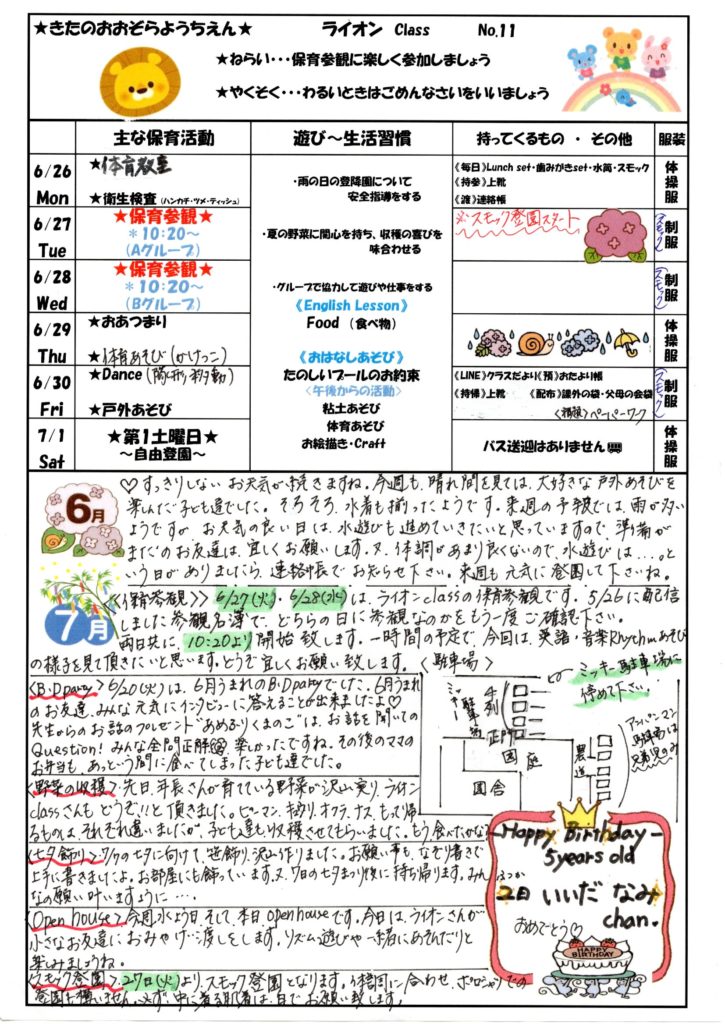 ★きたのおおぞらようちえん★ ライオン Class No.11
★ねらい・・・保育参観に楽しく参加しましょう
★やくそく・・・わるいときはごめんなさいをいいましょう
主な保育活動 遊び〜生活習慣 持ってくるもの ・ その他 服装
6/26 Mon
★体育教室
★衛生検査（ハンカチ・ツメ・ティッシュ）
・雨の日の登降園について
安全指導をする
《毎日》Lunch set・歯みがきset・水筒・スモック
《持参》上靴
《渡》連絡帳
体操服
6/27 Tue
★保育参観★
＊10:20〜
(Aグループ)
・夏の野菜に関心を持ち、収穫の喜びを
味合わせる
※スモック登園スタート
スモック
制服
6/28 Wed
★保育参観★
＊10:20〜
(Bグループ)
・グループで協力して遊びや仕事をする
《English Lesson》
スモック
制服
6/29 Thu
★おあつまり
★体育あそび(かけっこ)
Food （食べ物）
《おはなしあそび》
体操服
6/30 Fri
★Dance(隊形移動)
★戸外あそび
たのしいプールのお約束
〈午後からの活動〉
粘土あそび
《LINE》クラスだより《預》おたより帳
《持帰》上靴 《配布》課外の袋・父母の会袋
ペーパーワーク
スモック
制服
7/1 Sat
★第1土曜日★
〜自由登園〜
体育あそび
お絵描き・Craft
バス送迎はありません
体操服
6月
♡すっきりしない お天気が続きますね。今週も、晴れ間を見ては、大好きな戸外あそびを
楽しんだ子ども達でした。そろそろ、水着も揃ったようです。来週の予報では、雨が多い
ようですが お天気の良い日は、水遊びも進めていきたいと思っていますので、準備が
まだのお友達は、宜しくお願いします。又、体調があまり良くないので、水遊びは…。と
いう日がありましたら、連絡帳でお知らせ下さい。来週も元気に登園して下さいね。
7月
<<保育参観>> 6/27(火)・6/28(水)は、ライオンclassの保育参観です。5/26に配信
しました参観名簿で、どちらの日に参観なのかをもう一度ご確認下さい。
両日共に、10:20より開始致します。一時間の予定で、今回は、英語・音楽Rhythmあそび
の様子を見て頂きたいと思います。どうぞ宜しくお願い致します。
<駐車場>
ミッキー駐車場に
停めて下さい。
ミッキー駐車場
正門
園庭
園舎
農道
アンパンマン
駐車場は
兄弟児のみ
<B・Dparty> 6/20(火)は、6月うまれのB・Dpartyでした。6月うまれ
のお友達、みんな元気にインタビューに答えることが出来ましたよ♡
先生からのお話のプレゼント"あめふりくまのこ"は、お話を聞いての
Question! みんな全問正解 楽しかったですね。その後のママの
お弁当も、あっという間に食べてしまった子ども達でした。
<野菜の収穫> 先日、年長さんが育てている野菜が沢山実り、ライオン
classさんも、どうぞ!!と頂きました。ピーマン、キュウリ、オクラ、ナス、もって帰
るものは、それぞれ違いましたが、子ども達も収穫させてもらいました。もう食べたかな?
<七夕飾り> 7/7の七夕に向けて、笹飾り、沢山作りました。お願い事も、なぞり書きで
上手に書きましたよ。お部屋にも飾っています。又、7日の七夕まつり後に持ち帰ります。みん
なの願い叶いますように…
<Open house> 今週水よう日、そして、本日、openhouseです。今日は、ライオンさんが
小さなお友達に、おみやげ 渡しをします。リズム遊びや一緒にあそんだりと
楽しみましょうね。
<スモック登園> 27日(火)より、スモック登園となります。体操同に合わせ、ポロシャツでの
登園も構いません。必ず、中に着る肌着は、白でお願い致します。
Happy Birthday
5years old
2日 いいだ なみ
chan.
おめでとう♡
HAPPY BIRTHDAY